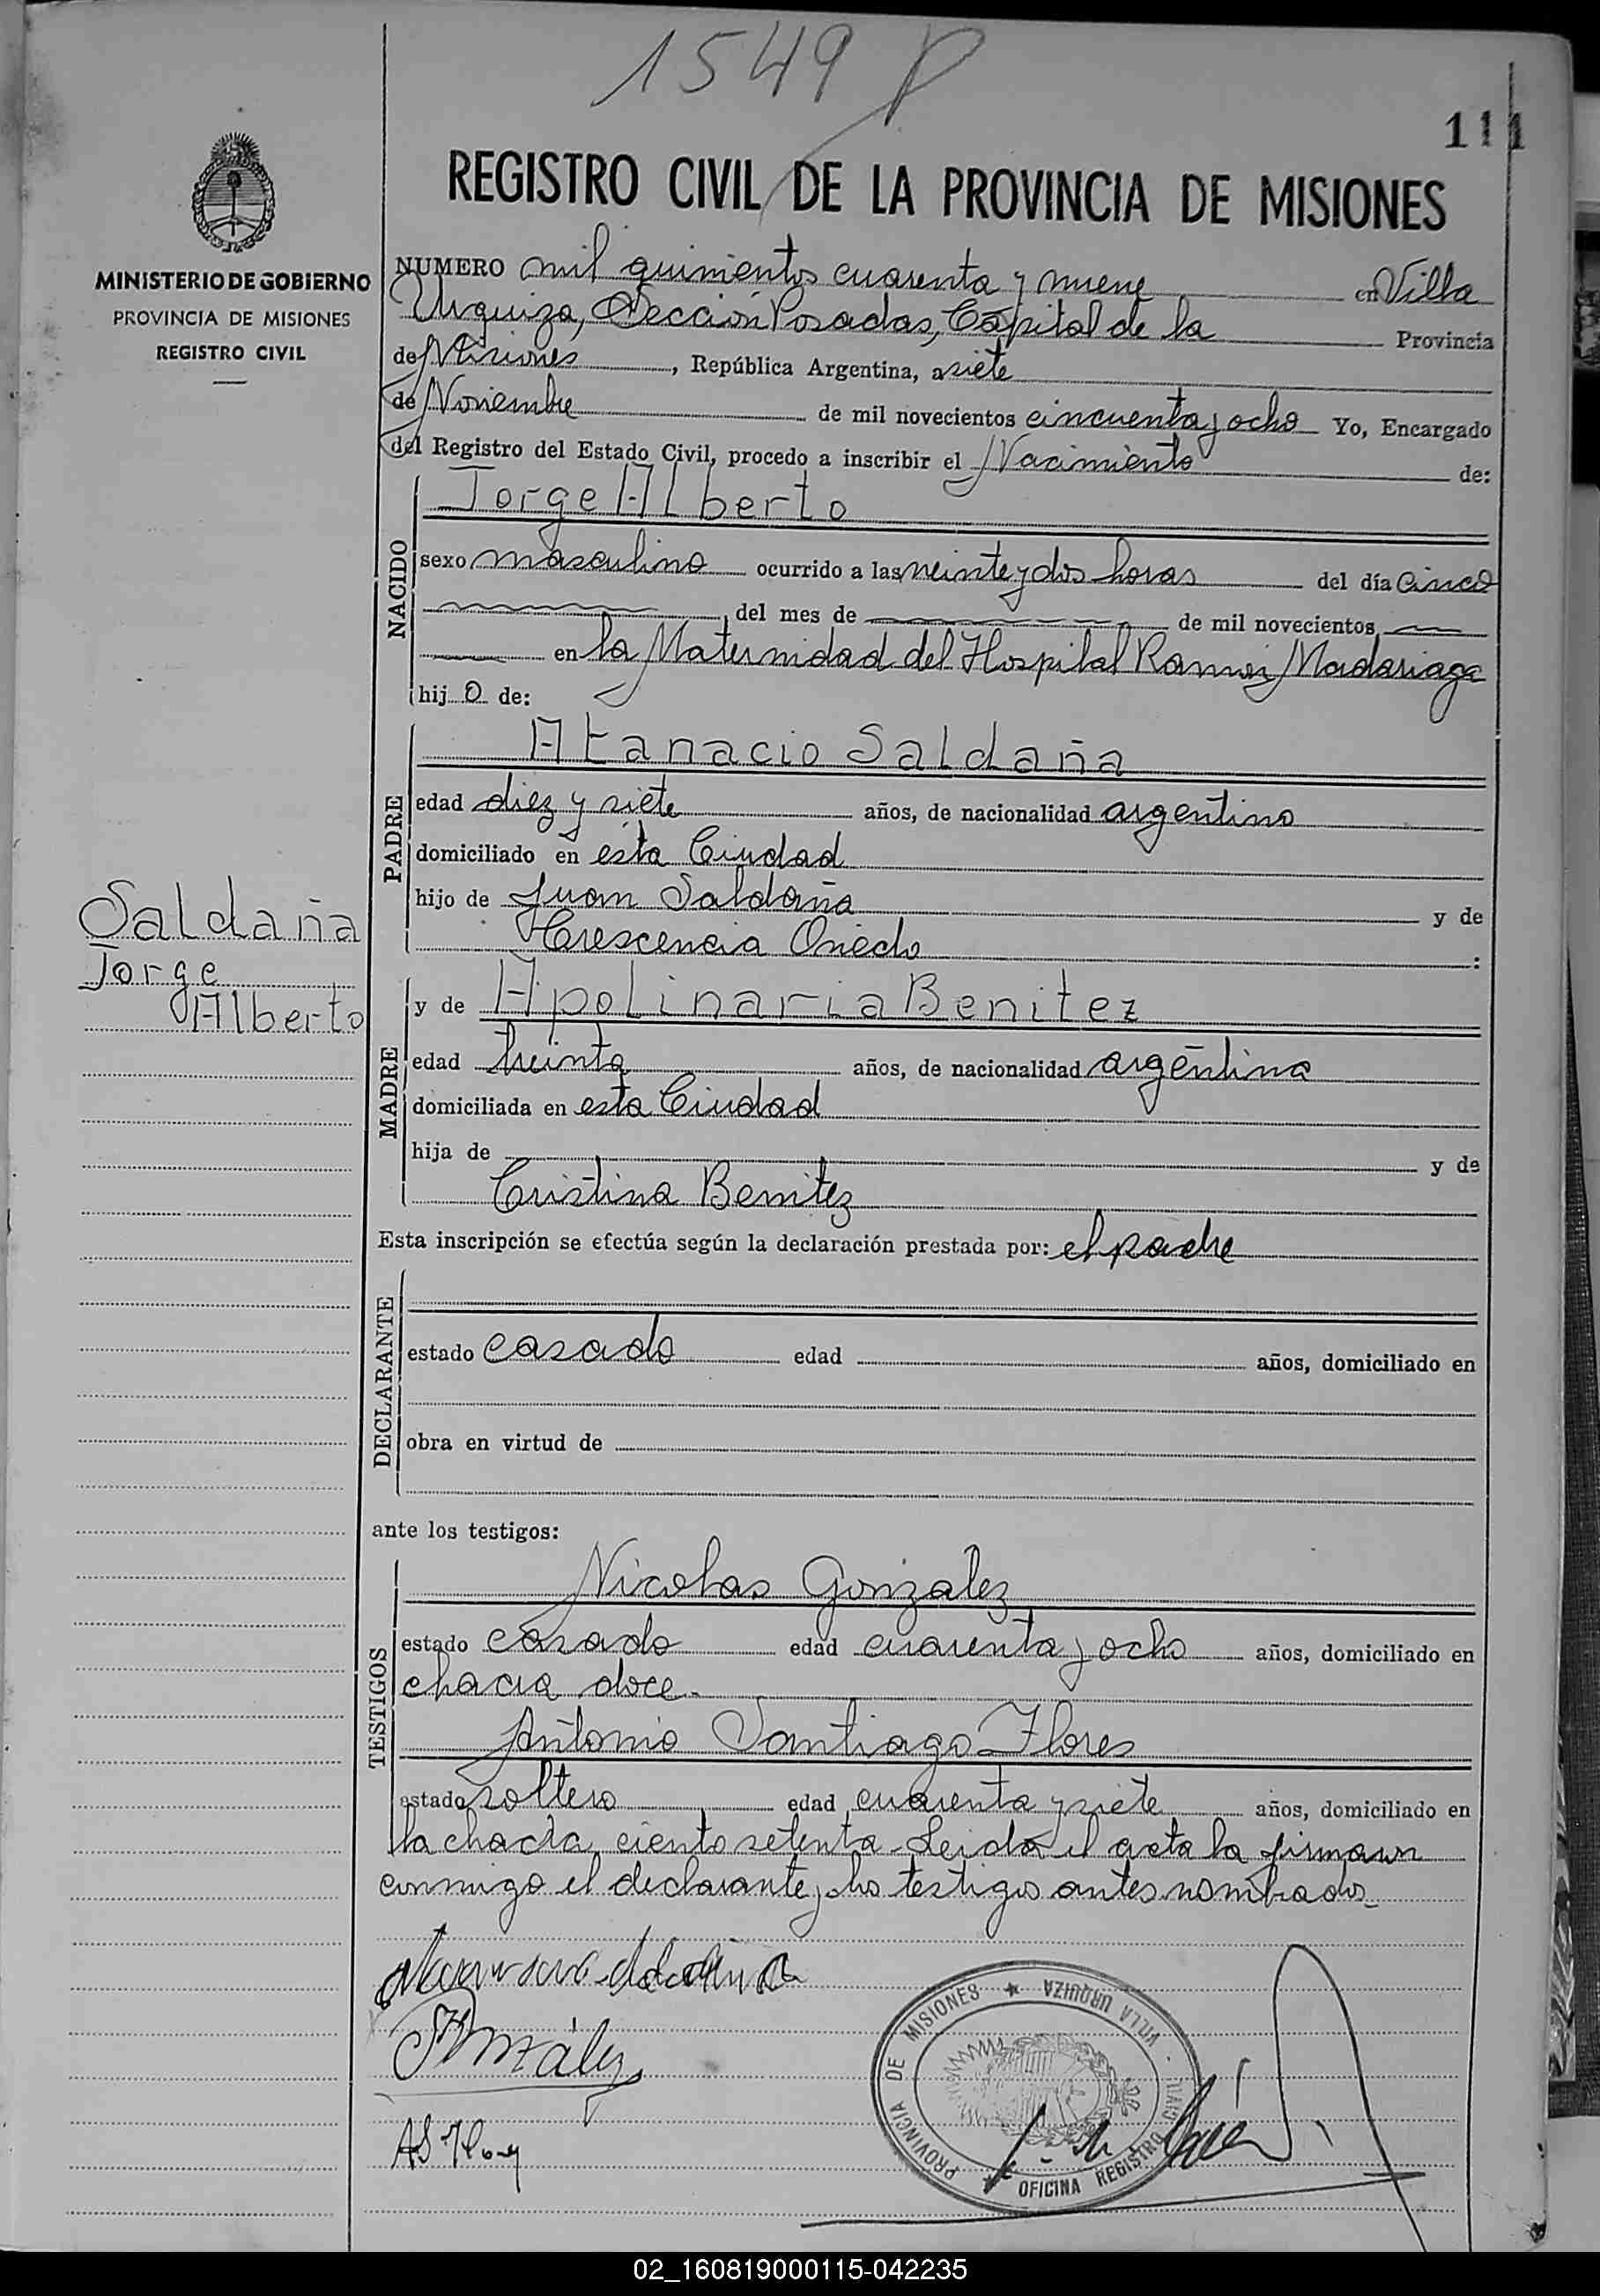 1549 P
111
REGISTRO CIVIL DE LA PROVINCIA DE MISIONES
MINISTERIO DE GOBIERNO
PROVINCIA DE MISIONES
REGISTRO CIVIL
NUMERO mil quinientos cuarenta y nueve en Villa
Urquiza, Sección Posadas, Capital de la Provincia
de Misiones, República Argentina, a siete
de Noviembre de mil novecientos cincuenta y ocho Yo, Encargado
del Registro del Estado Civil, procedo a inscribir el Nacimiento de:
NACIDO
Jorge Alberto
sexo masculino ocurrido a las veinte y dos horas del día cinco
del mes de de mil novecientos
en la Maternidad del Hospital Ramón Madariaga
hijo de:
PADRE
Atanacio Saldaña
edad diez y siete años, de nacionalidad argentino
domiciliado en esta Ciudad
hijo de Juan Saldaña y de
Crescencia Oviedo :
Saldaña
Jorge
Alberto
MADRE
y de Apolinaria Benitez
edad treinta años, de nacionalidad argentina
domiciliada en esta Ciudad
hija de y de
Cristina Benitez
Esta inscripción se efectúa según la declaración prestada por: el padre
DECLARANTE
estado casado edad años, domiciliado en
obra en virtud de
ante los testigos:
TESTIGOS
Nicolas Gonzalez
estado casado edad cuarenta y ocho años, domiciliado en
chacra doce.
Antonio Santiago Flores
estado soltero edad cuarenta y siete años, domiciliado en
la chacra ciento setenta Leida el acta la firman
conmigo el declarante y los testigos antes nombrados
González
AS Flores
PROVINCIA DE MISIONES ★ VILLA URQUIZA
OFICINA REGISTRO CIVIL
02_160819000115-042235